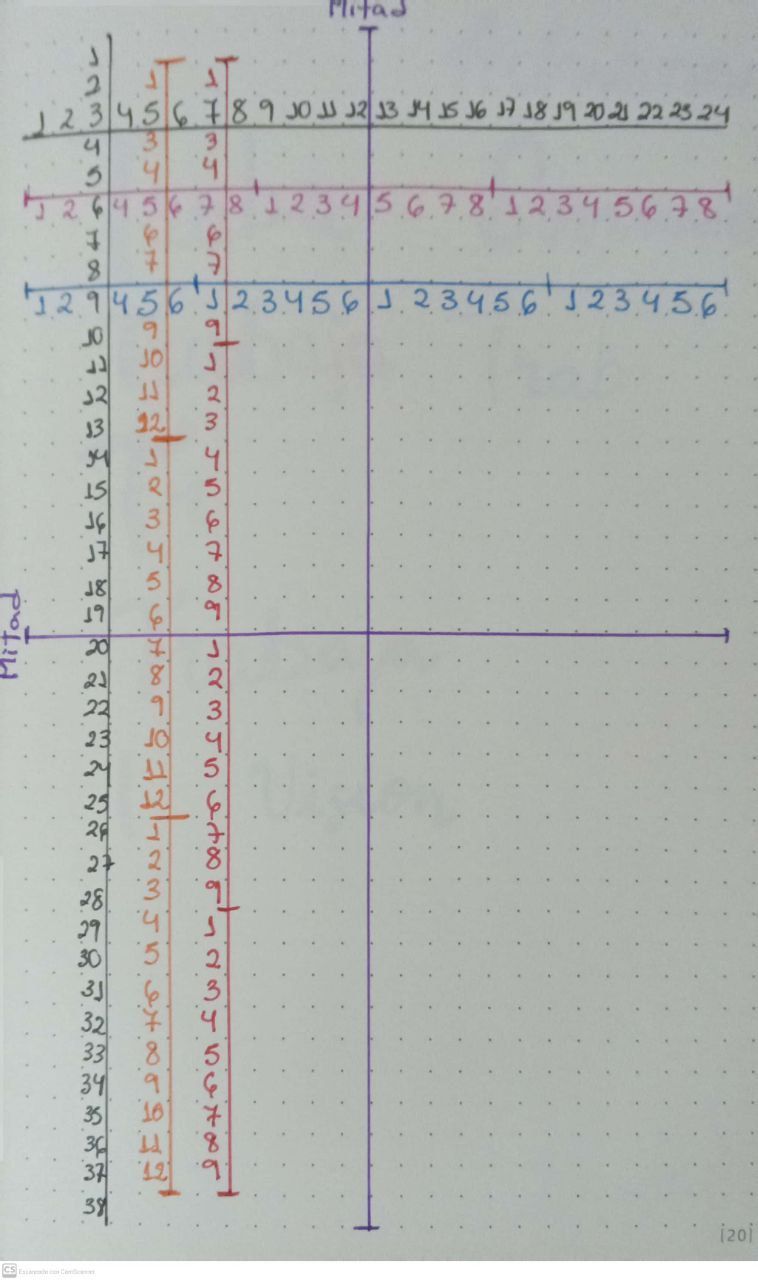 Mitad
1
2 1 1
1 2 3 4 5 6 7 8 9 10 11 12 13 14 15 16 17 18 19 20 21 22 23 24
4 3 3
5 4 4
1 2 6 4 5 6 7 8 1 2 3 4 5 6 7 8 1 2 3 4 5 6 7 8
7 6 6
8 7 7
1 2 9 4 5 6 1 2 3 4 5 6 1 2 3 4 5 6 1 2 3 4 5 6
10 9 9
11 10 1
12 11 2
13 12 3
14 1 4
15 2 5
16 3 6
17 4 7
18 5 8
19 6 9
Mitad
20 7 1
21 8 2
22 9 3
23 10 4
24 11 5
25 12 6
26 1 7
27 2 8
28 3 9
29 4 1
30 5 2
31 6 3
32 7 4
33 8 5
34 9 6
35 10 7
36 11 8
37 12 9
38
[20]
CS Escaneado con CamScanner